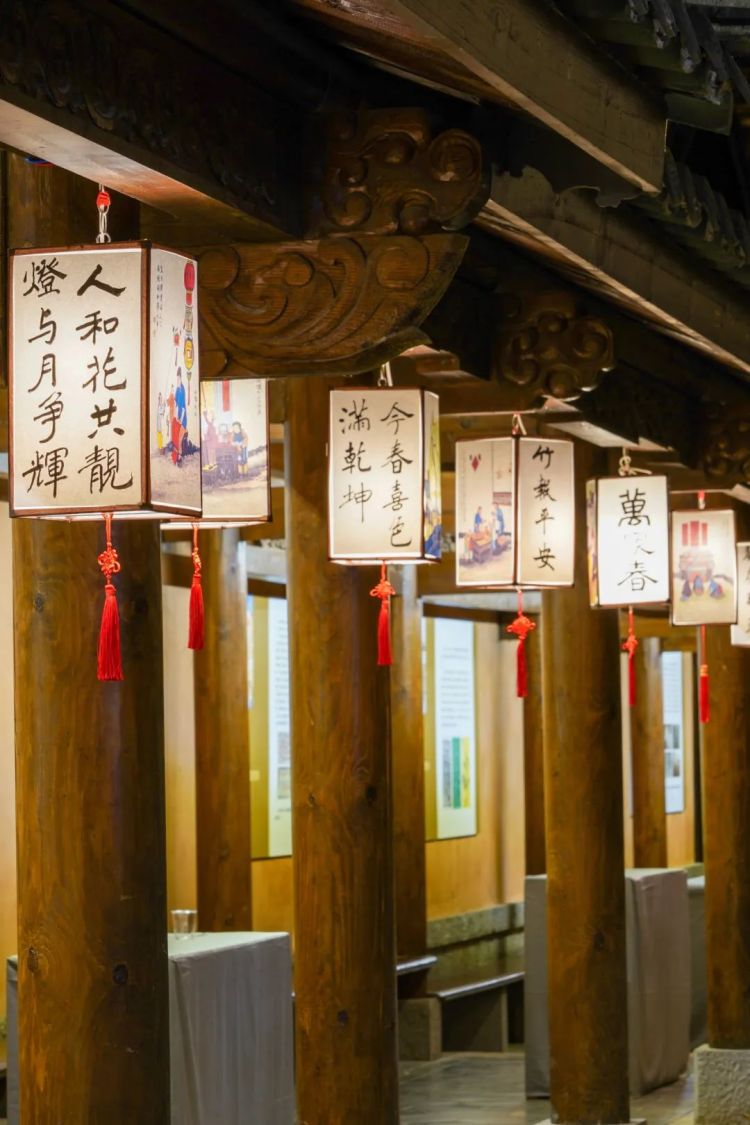 人和花共靚
燈与月争輝
今春喜色
滿乾坤
竹報平安
萬春